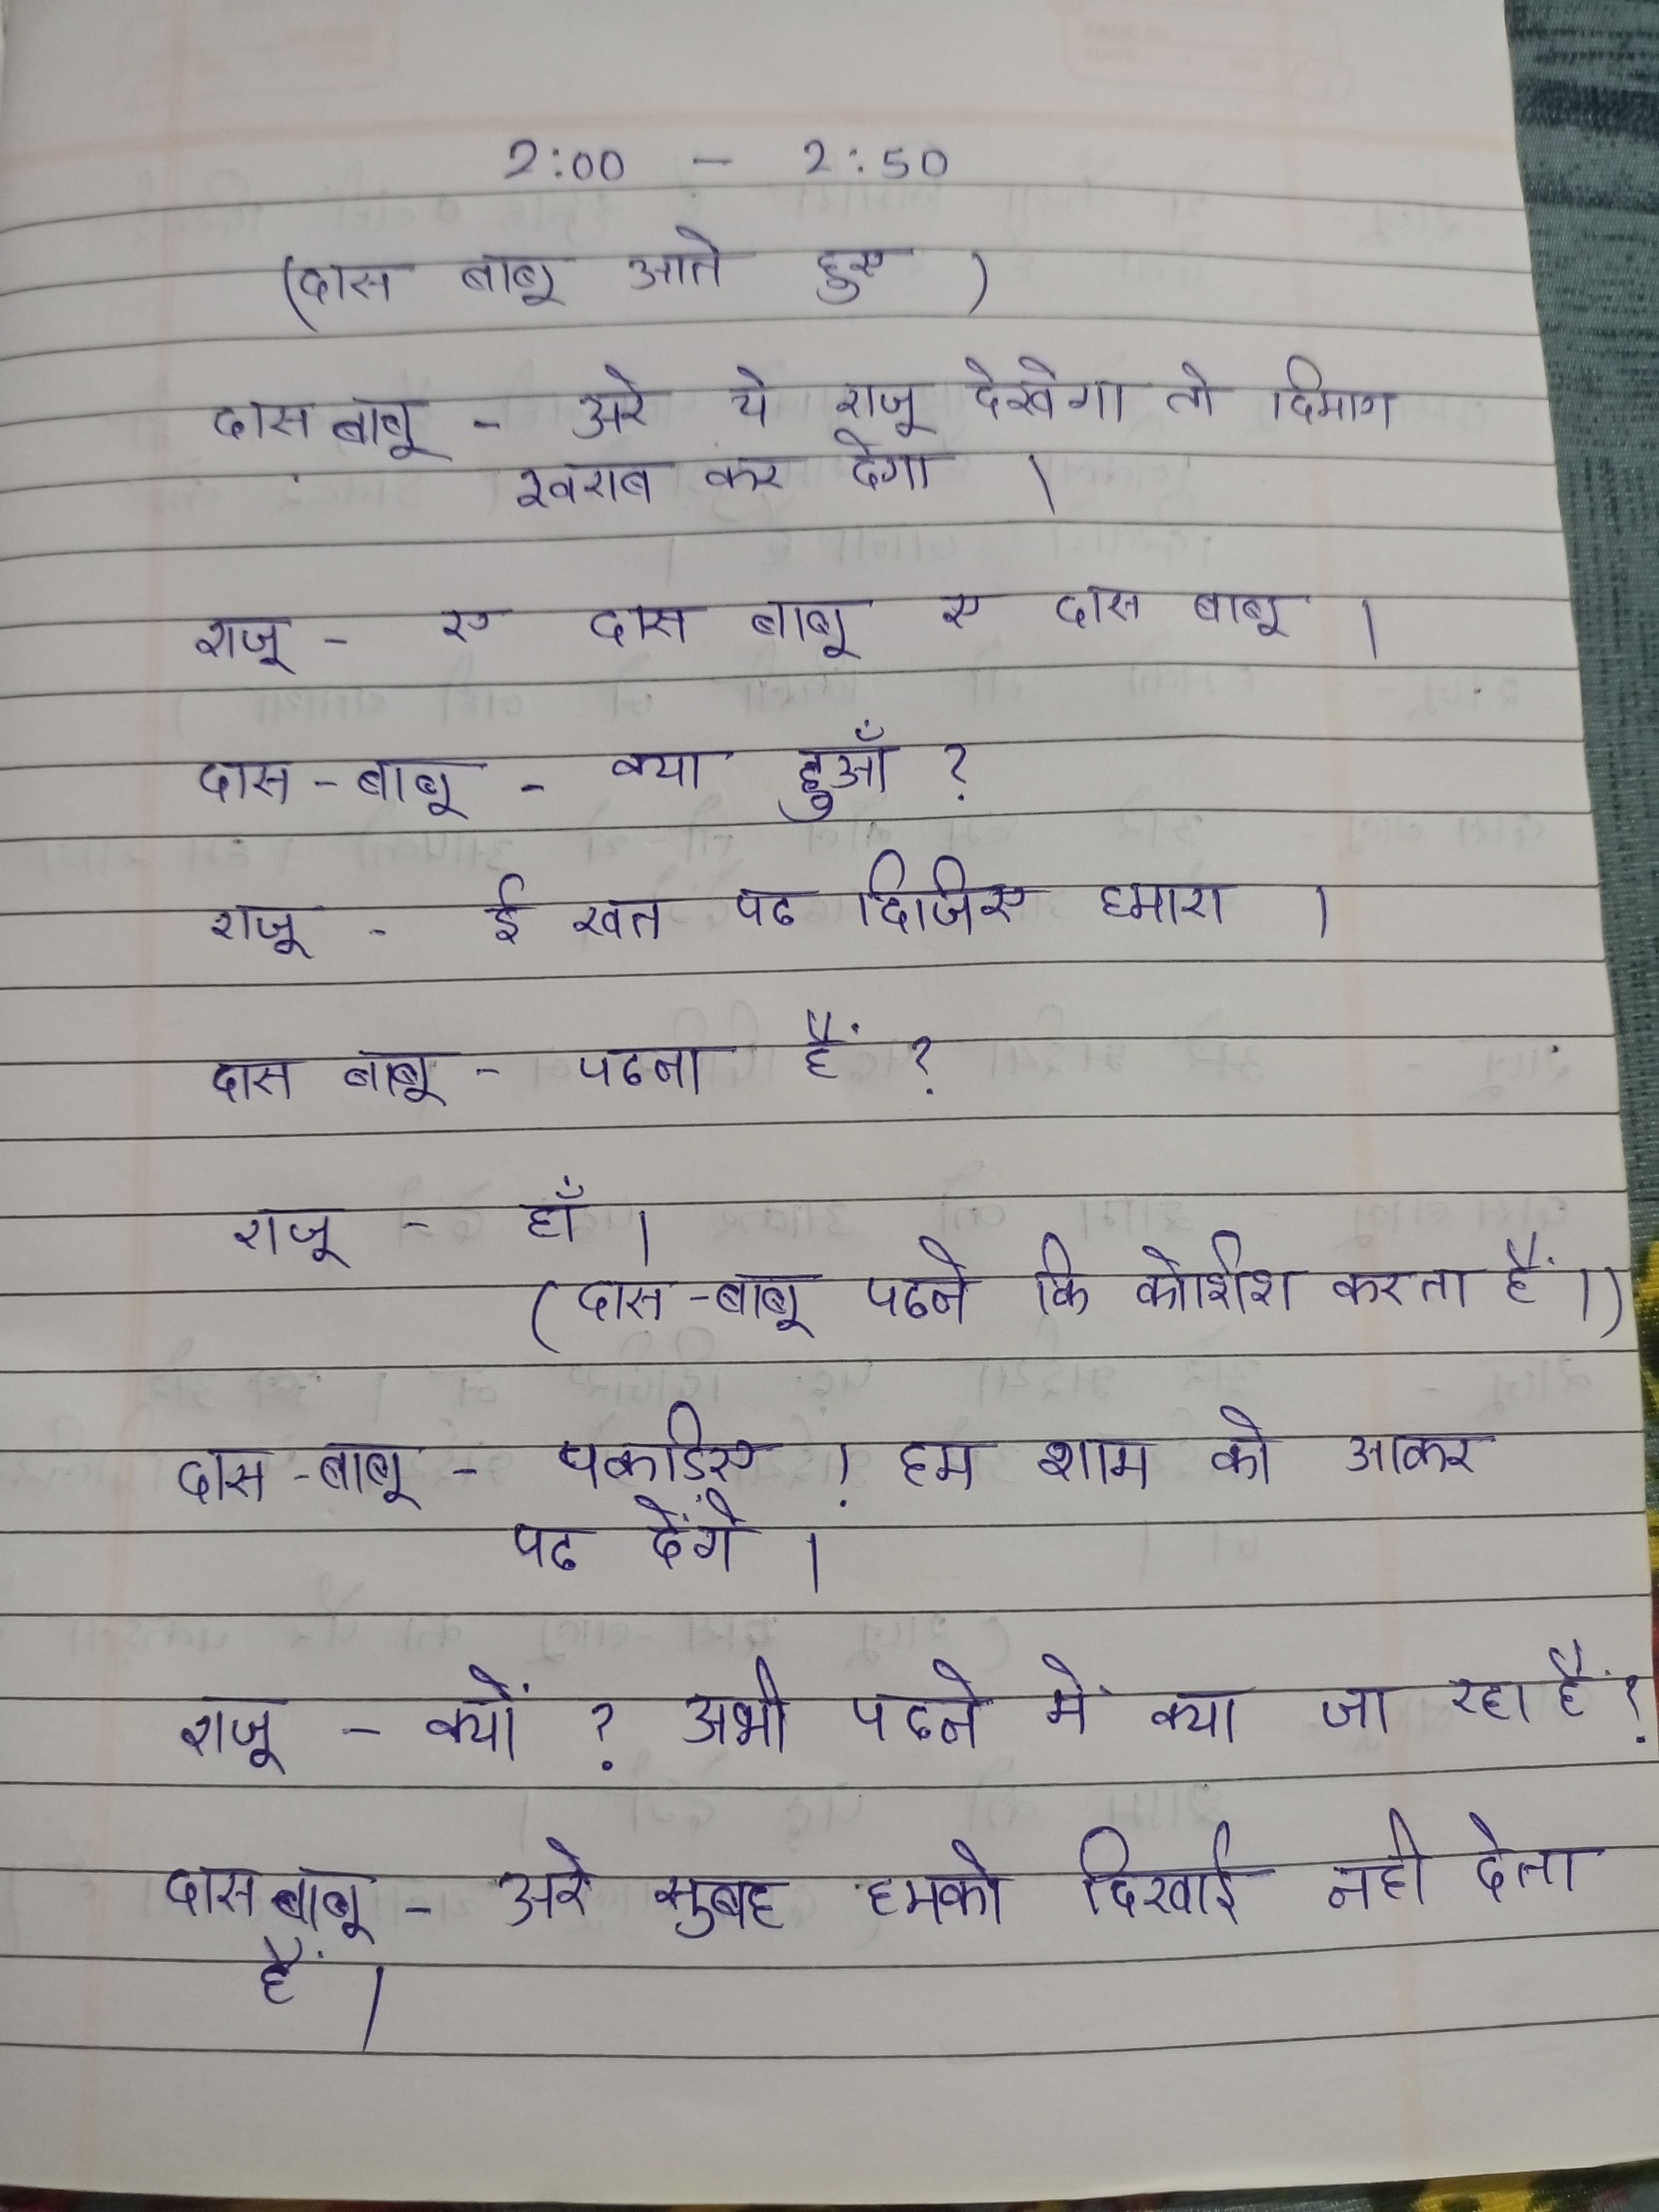 2:00 - 2:50
(दास बाबू आते हुए )
दास बाबू - अरे ये राजू देखेगा तो दिमाग
खराब कर देगा ।
राजू - ए दास बाबू ए दास बाबू ।
दास-बाबू - क्या हुआँ ?
राजू - ई खत पढ दिजिए हमारा ।
दास बाबू - पढना हैं ?
राजू - हाँ ।
(दास-बाबू पढने कि कोशिश करता हैं ।)
दास-बाबू - पकडिए ! हम शाम को आकर
पढ देंगे ।
राजू - क्यों ? अभी पढने में क्या जा रहा हैं ?
दास बाबू - अरे सुबह हमको दिखाई नही देता
हैं ।